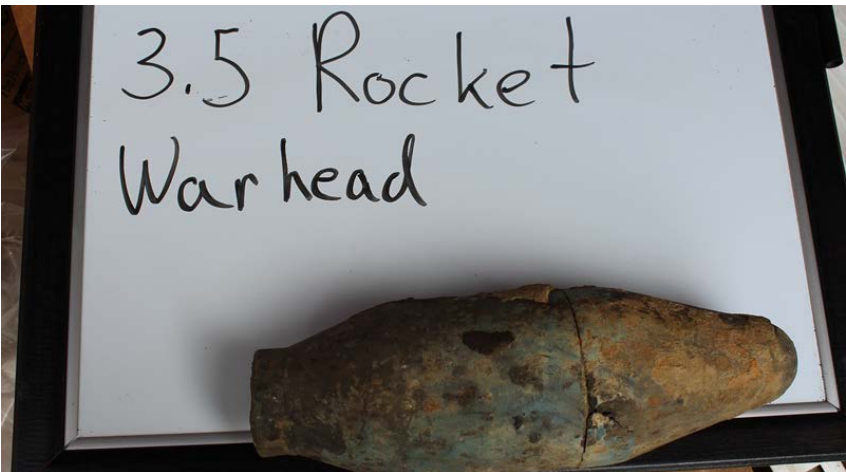 3.5 Rocket
Warhead